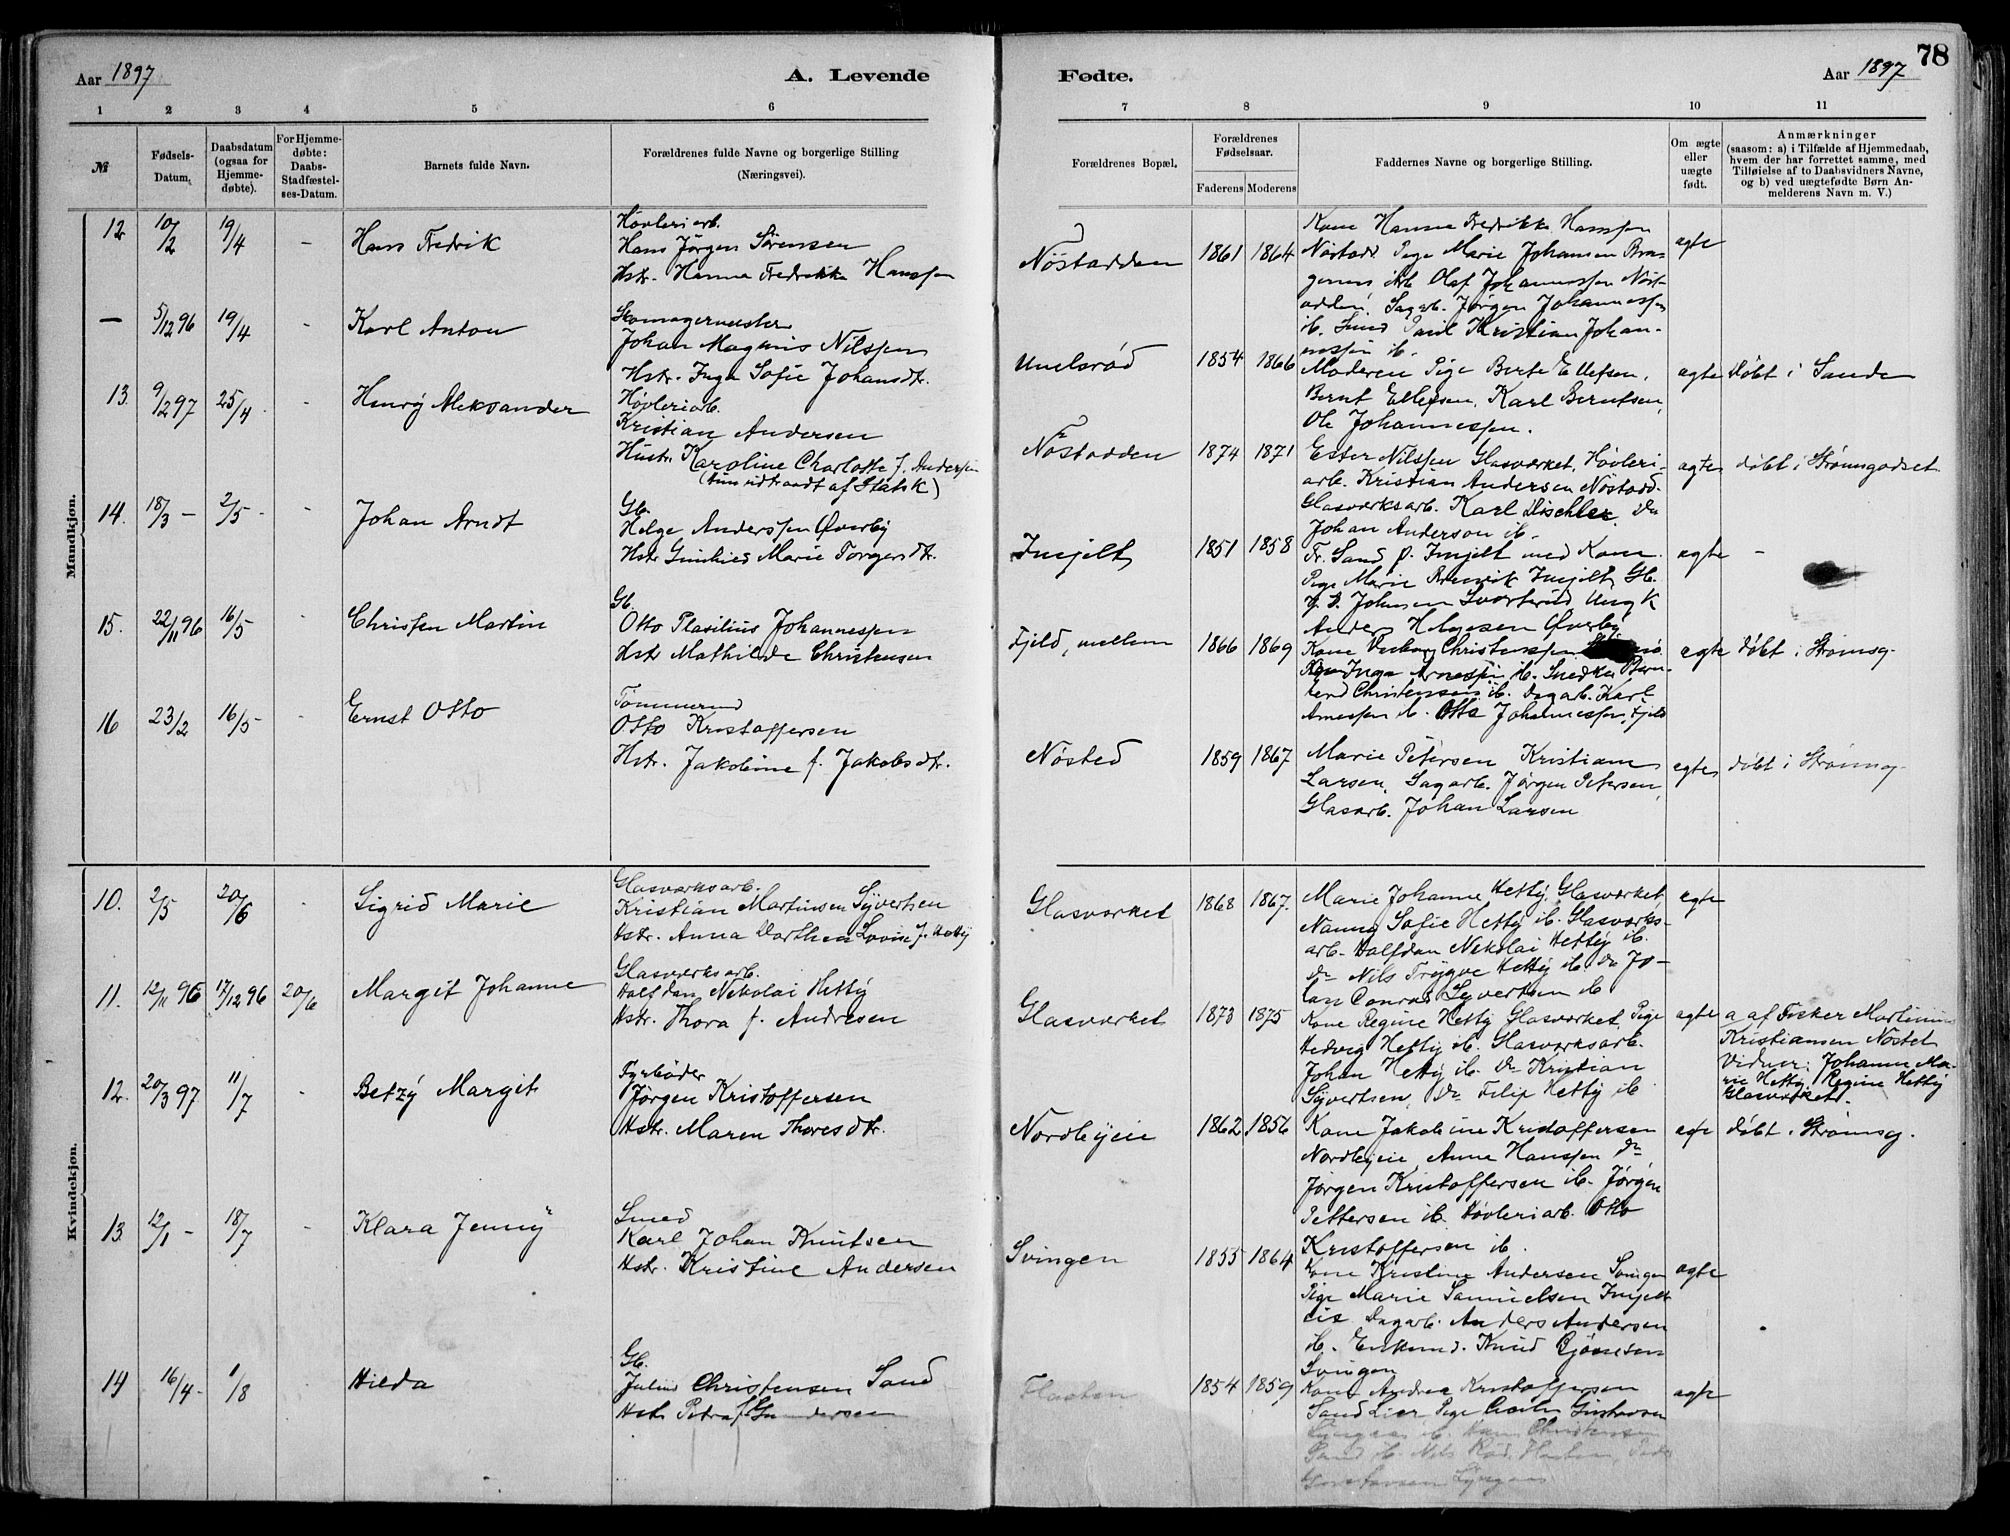 78
Aar 1897
A. Levende
Fødte.
Aar 1897
1 2 3 4 5 6 7 8 9 10 11
№
Fødsels-Datum.
Daabsdatum (ogsaa for Hjemmedøbte).
For Hjemmedøbte: Daabs-Stadfæstelses-Datum.
Barnets fulde Navn.
Forældrenes fulde Navne og borgerlige Stilling
(Næringsvei).
Forældrenes Bopæl.
Forældrenes Fødselsaar.
Faderens Moderens
Faddernes Navne og borgerlige Stilling.
Om ægte eller uægte født.
Anmærkninger
(saasom: a) i Tilfælde af Hjemmedaab,
hvem der har forrettet samme, med
Tilføielse af to Daabsvidners Navne,
og b) ved uægtefødte Børn Anmelderens Navn m. V.)
Mandkjøn.
12 10/2 19/4 - Hans Fredrik
Høvleriarb.
Hans Jørgen Sørensen
Hstr. Hanna Fredrikke Hanssen
Nøstodden 1861 1864
Kone Hanna Fredrikke Hanssen
Nøstodd. Pige Marie Johansen Bra-
gernes Arb. Olaf Johannessen Nøst-
odden, Sagarb. Jørgen Johannessen
ib. Paul Kristian Johan-
nessen ib.
ægte
— 5/12 96 19/4 - Karl Anton
Skomagermester
Johan Magnus Nilssen
Hstr. Inga Sofie Johansdtr.
Unelsrød 1854 1866
Moderen Pige Berte Ellefsen,
Bernt Ellefsen, Karl Berntsen,
Ole Johannessen.
ægte Døbt i Sande
13. 9/2 97 25/4 - Henry Aleksander
Høvleriarb.
Kristian Andersen
Hustr. Karoline Charlotte f. Anderssen
(hun udtraadt af Statsk)
Nøstodden 1874 1871
Ester Nilssen Glasværket, Høvleri-
arb. Kristian Andersen Nøstodd.
Glasværksarb. Karl Dischler, Do
Johan Anderson ib.
ægte døbt i Strømsgodset
14. 18/3 - 2/5 - Johan Arndt
Gb.
Helge Anderssen Øverby
Hstr Gunhild Marie Torgersdtr.
Imjelt 1851 1858
Fr. Sand p. Imjelt med Kone
Pige Marie Imjelt Gb.
Johnsen Svarterud Ungk
Anders Helgesen Øverby
ægte -
15. 22/11 96 16/5 - Christen Martin
Gb.
Otto Plasilius Johannessen
Hstr Mathilde Christensen
Fjeld, mellem 1866 1869
Kone Christensen
Inga Arnessen ib. Snedker Bern-
Christensen ib. Dagarb. Karl
Arnessen ib. Otto Johannessen, Fjeld
ægte døbt i Strømsg.
16 23/2 16/5 - Ernst Otto
Tømmermd
Otto Kristoffersen
Hstr. Jakobine f. Jakobsdtr.
Nøsted 1859 1867
Marie Petersen Kristian
Larsen, Sagarb. Jørgen Petersen,
Glasarb. Johan Larsen
ægte døbt i Strømsg.
Kvindekjøn.
10. 2/5 20/6 - Sigrid Marie
Glasværksarb.
Kristian Martinsen Syvertsen
Hstr. Anna Dorthea Lovise f. Hetty
Glasværket 1868 1867.
Marie Johanne Hetty, Glasværket,
Nanny Sofie Hetty ib. Glasværks-
arb. Halfdan Nikolai Hetty ib.
Do Nils Trygve Hetty ib. Do Jo-
han Conrad Syvertsen ib
ægte
11. 12/11 96 17/12 96 20/6 Margit Johanne
Glasværksarb.
Halfdan Nikolai Hetty
Hstr. Thora f. Andresen
Glasværket 1873 1875
Kone Regine Hetty Glasværket, Pige
Hedvig Hetty ib. Glasværksarb.
Johan Hetty ib. Do Kristian
Syvertsen, Do Filip Hetty ib
ægte a af Fisker Martinius
Kristiansen Nøstet
Vidner: Johanne Ma-
rie Hetty, Regine Hetty
Glasværket.
12. 20/3 97 11/7 - Betzy Margit
Fyrbøder
Jørgen Kristoffersen
Hstr. Maren Thoresdtr.
Nordbyeie 1862 1856
Kone Jakobine Kristoffersen
Nordbyeie, Anne Hanssen Do
Jørgen Kristoffersen ib. Jørgen
Pettersen ib. Høvleriarb. Otto
Kristoffersen ib.
ægte døbt i Strømsg.
13. 12/1 - 18/7 - Klara Jenny
Smed
Karl Johan Knutsen
Hstr. Kristine Andersen
Svingen 1855 1864
Kone Kristine Andersen Svingen
Pige Marie Samuelsen Imjelt
eie Dagarb. Anders Andersen
ib. Enkemd. Knud Bjørnesen
Svingen
ægte
14 16/4 - 1/8 Hilda
Gb.
Julius Christensen Sand
Hstr Petra f. Gundersen
Hasten 1854 1859
Kone Andrea Kristoffersen
Sand Lier Pige Gustavsen
ib. Hans Christensen
Sand ib. Nils Rød, Hasten,
Gustavsen
ægte